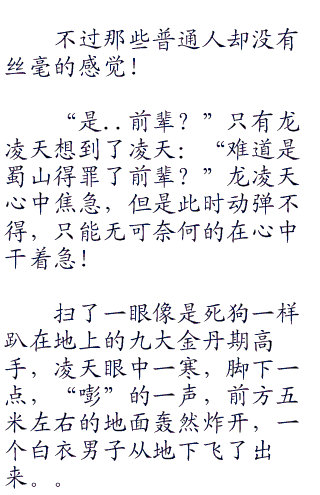 不过那些普通人却没有
丝毫的感觉！
“是..前辈？”只有龙
凌天想到了凌天：“难道是
蜀山得罪了前辈？”龙凌天
心中焦急，但是此时动弹不
得，只能无可奈何的在心中
干着急！
扫了一眼像是死狗一样
趴在地上的九大金丹期高
手，凌天眼中一寒，脚下一
点，“嘭”的一声，前方五
米左右的地面轰然炸开，一
个白衣男子从地下飞了出
来。。